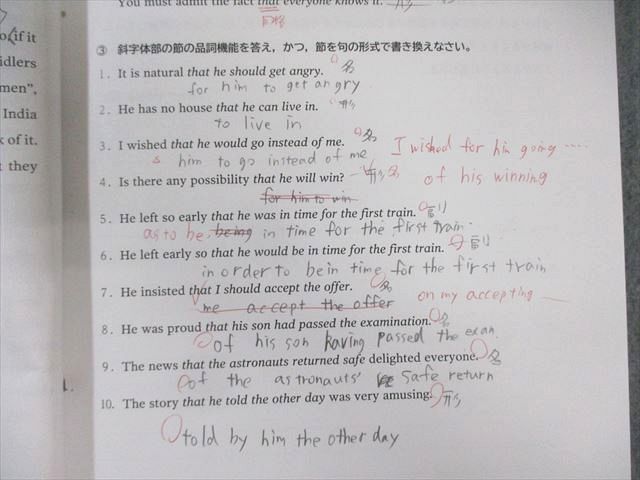 You must admit the fact that everyone knows it. 形
同格
o, if it
idlers
men",
India
k of it.
t they
③ 斜字体部の節の品詞機能を答え，かつ，節を句の形式で書き換えなさい。
1. It is natural that he should get angry. 名
for him to get angry
2. He has no house that he can live in. 形
to live in
3. I wished that he would go instead of me. 名
I wished for him going ....
him to go instead of me
4. Is there any possibility that he will win? 形 名
of his winning
for him to win
5. He left so early that he was in time for the first train. 副
as to be being in time for the first train
6. He left early so that he would be in time for the first train. 副
in order to be in time for the first train
7. He insisted that I should accept the offer. 名
me accept the offer
on my accepting
8. He was proud that his son had passed the examination. 名
of his son having passed the exam
9. The news that the astronauts returned safe delighted everyone. 名
of the astronauts' safe return
10. The story that he told the other day was very amusing. 形
told by him the other day